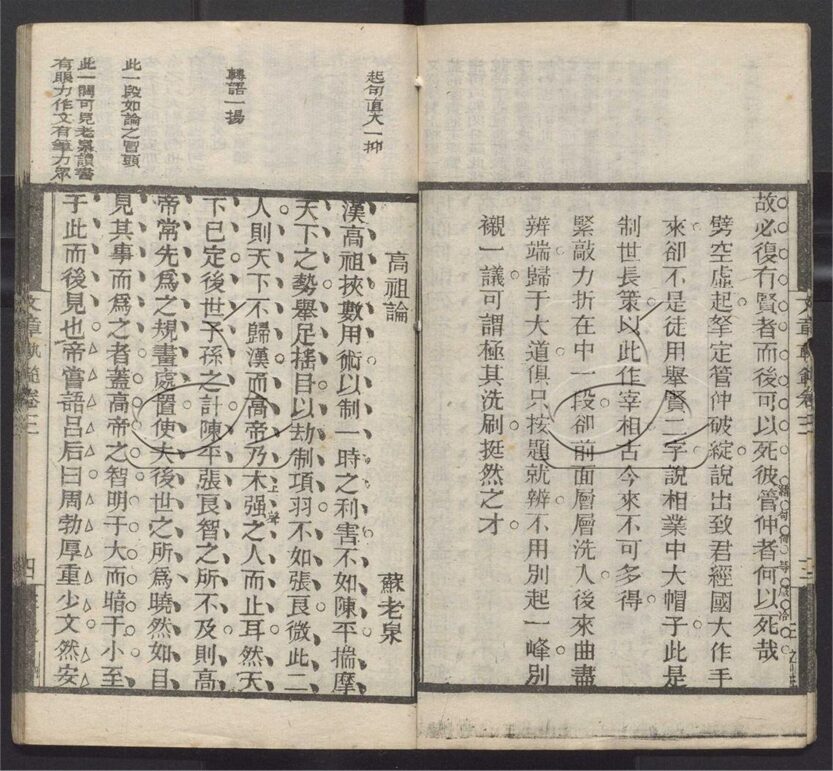 故必復有賢者而後可以死彼管仲者何以死哉
劈空虛起拏定管仲破綻說出致君經國大作手
來卻不是徒用舉賢二字說相業中大帽子此是
制世長策以此作宰相古今來不可多得
緊敲力折在中一段卻前面層層洗入後來曲盡
辨端歸于大道俱只按題就辨不用別起一峰別
襯一議可謂極其洗刷挺然之才
高祖論 蘇老泉
起句直大一抑
漢高祖挾數用術以制一時之利害不如陳平揣摩
天下之勢舉足搖目以劫制項羽不如張良微此二
人則天下不歸漢而高帝乃木强之人而止耳然天
上聲
轉語一揚
下已定後世子孫之計陳平張良智之所不及則高
帝常先爲之規畫處置使夫後世之所爲曉然如目
此一段如論之冒頭
見其事而爲之者蓋高帝之智明于大而暗于小至
此一關可見老泉讀書
有眼力作文有筆力眾
于此而後見也帝嘗語呂后曰周勃厚重少文然安
文章軌範卷三
四